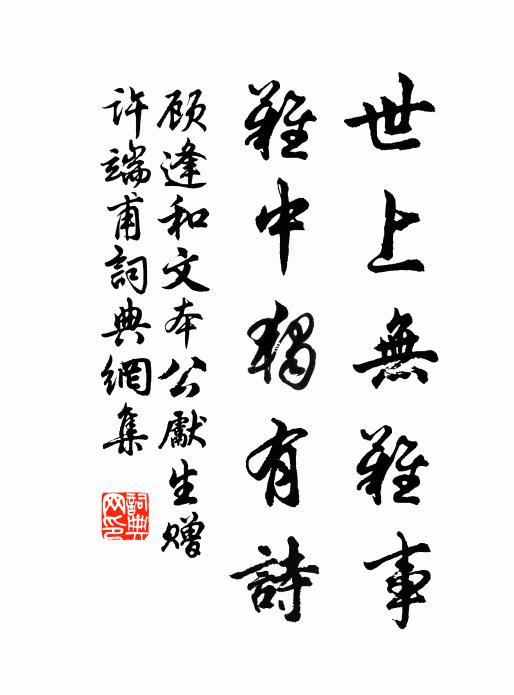 世上無難事
難中獨有詩
顾逢和文本公獻生贈
许端甫詞典網集
詞典网印